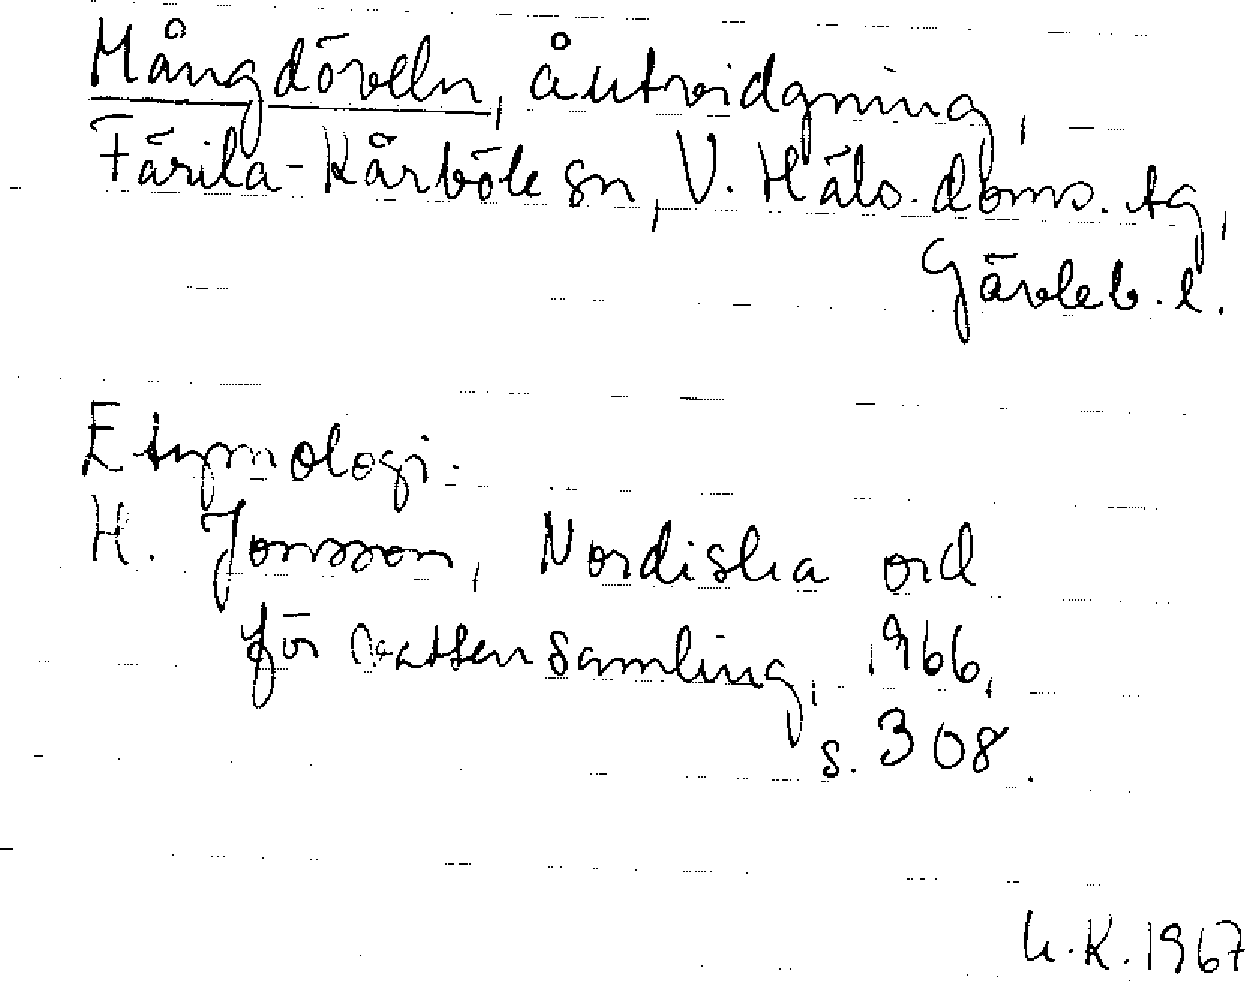 Mångdöveln, åutvidgning,
Färila-Kårböle sn, V. Häls. doms. tg,
Gävleb. l.
Etymologi:
H. Jonsson, Nordiska ord
för vattensamling, 1966,
s. 308.
K. 1967